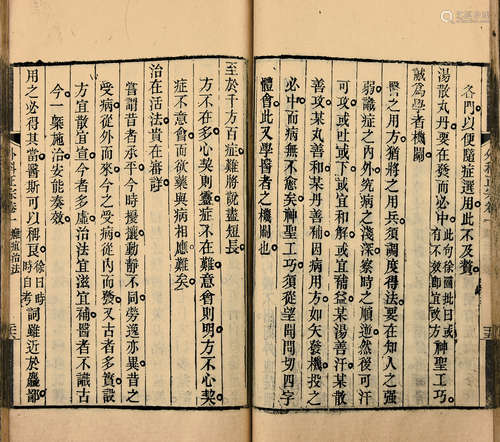 各門以便隨症選用此不及贅
湯散丸丹要在發而必中此句徐圖批曰或有不效卽宜改方神聖工巧
誠爲學者機關
醫之用方猶將之用兵須調度得法要在知人之强
弱識症之內外究病之淺深察時之順逆然後可汗
可攻或吐或下或宜和解或宜補益某湯善汗某散
善攻某丸善和某丹善補因病用方如矢發機投之
必中而病無不愈矣神聖工巧須從望聞問切四字
體會此又學醫之機關也
至於千方百症難將說盡短長
方不在多心契則靈症不在難意會則明方不心契
症不意會而欲藥與病相應難矣
治在活法貴在審詳
嘗謂昔者承平今時擾攘動靜不同勞逸亦異昔之
受病從外而來今之受病從內而發又古者多實設
方宜散宜宣今者多虛治法宜滋宜補醫者不識古
今一槩施治安能奏效
用之必得其當醫斯可以稱良徐曰時時自考詞雖近於鄙
外科正宗卷一
癰疽治法